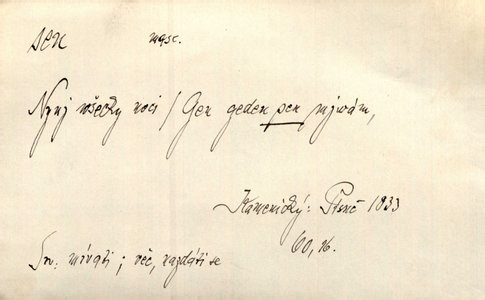 sen masc.
Nynj wšecky noci / Gen geden sen mjwám,
Kamenický: Pjsně 1833
60, 16.
Srv. mívati; věc, nazdáti se